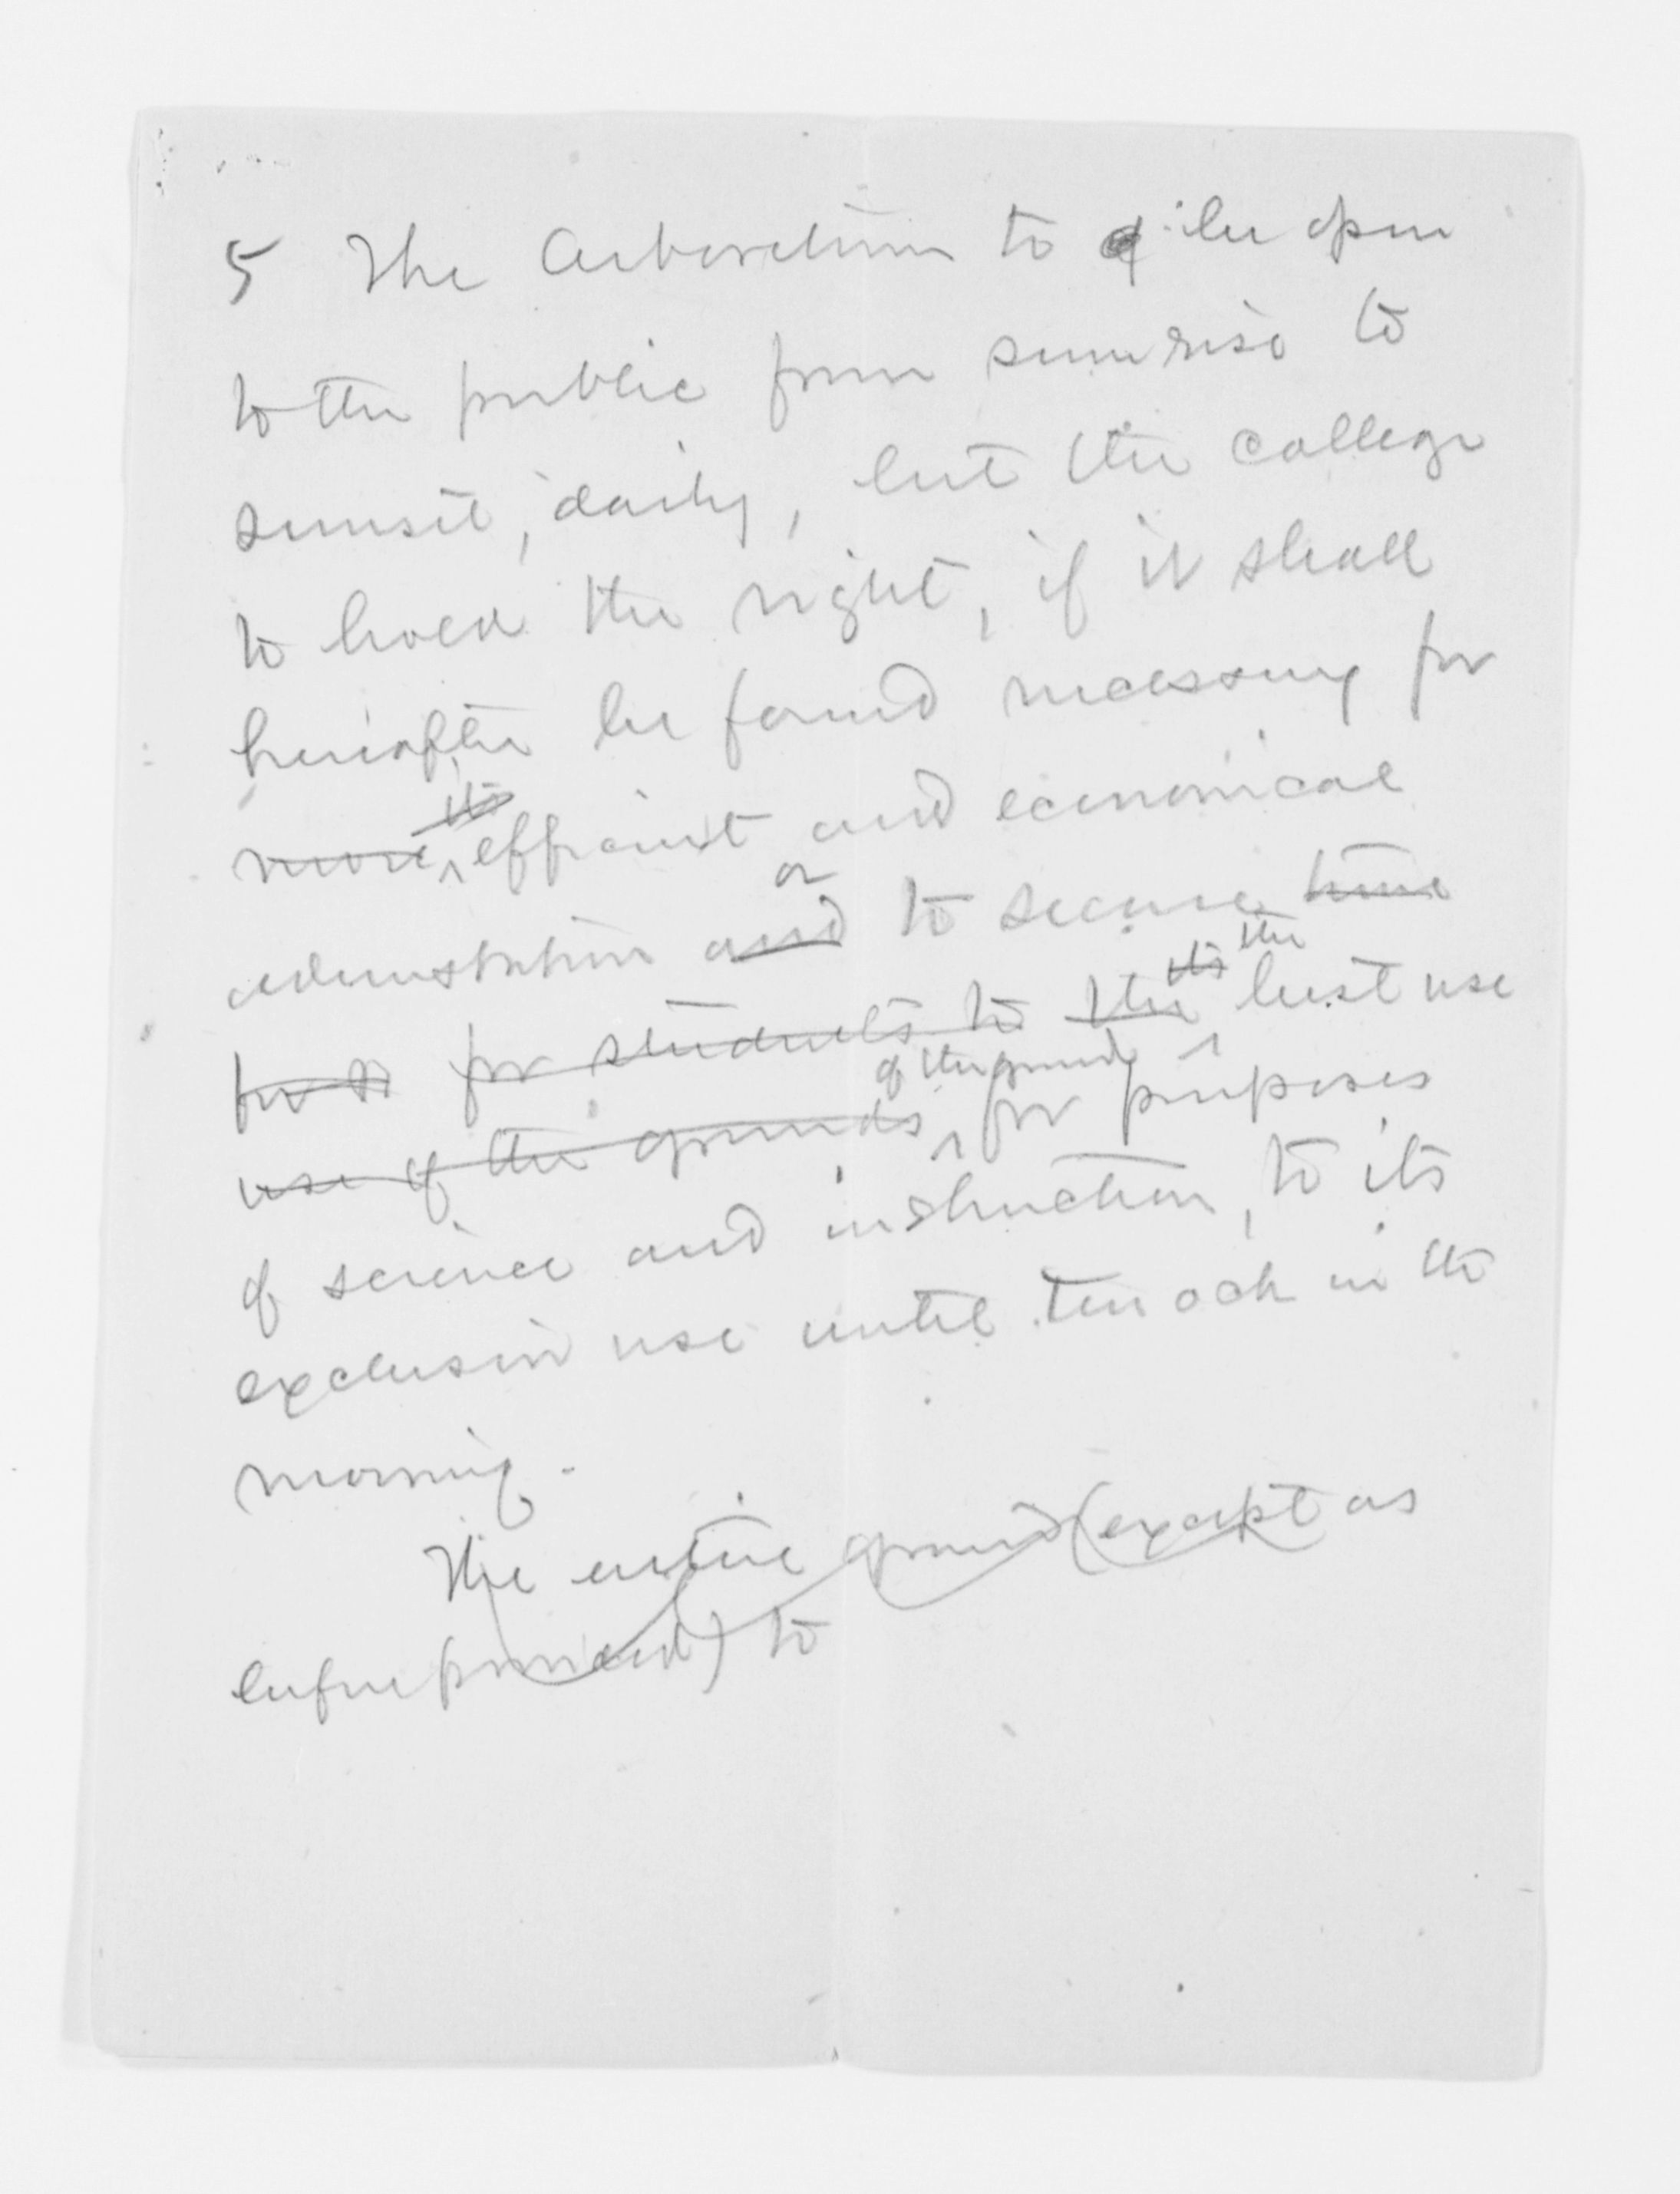 5 The Arboretum to be open
to the public from sunrise to
sunset, daily, but the college
to have the right, if it shall
hereafter be found necessary for
more its efficient and economical
administration and or to secure time
for st for students to the its the best use
use of the grounds of the grounds for purposes
of science and instruction, to its
exclusive use until ten o'ck in the
morning.
The entire ground (except as
before provided) to